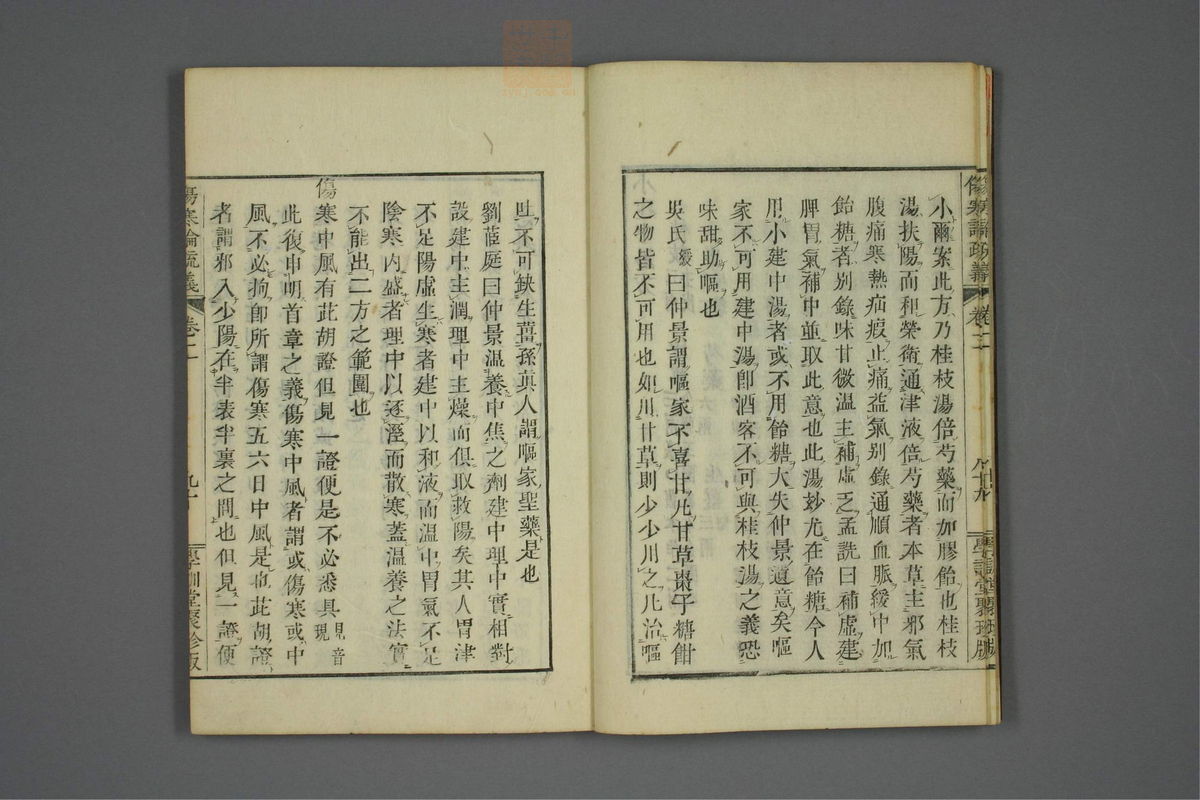 小爾案此方乃桂枝湯倍芍藥而加膠飴也桂枝
湯扶陽而和榮衛通津液倍芍藥者本草主邪氣
腹痛寒熱疝瘕止痛益氣別錄通順血脈緩中加
飴糖者別錄味甘微溫主補虛乏孟詵曰補虛建
脾胃氣補中並取此意也此湯妙尤在飴糖今人
用小建中湯者或不用飴糖大失仲景遺意矣嘔
家不可用建中湯卽酒客不可與桂枝湯之義恐
味甜助嘔也
吳氏綬曰仲景謂嘔家不喜甘凡甘草棗子糖餠
之物皆不可用也如用甘草則少少用之凡治嘔
吐不可缺生薑孫眞人謂嘔家聖藥是也
劉茝庭曰仲景溫養中焦之劑建中理中實相對
設建中主潤理中主燥而俱取救陽矣其人胃津
不足陽虛生寒者建中以和液而溫中胃氣不足
陰寒內盛者理中以逐溼而散寒蓋溫養之法實
不能出二方之範圍也
傷寒中風有茈胡證但見一證便是不必悉具見音現
此復申明首章之義傷寒中風者謂或傷寒或中
風不必拘卽所謂傷寒五六日中風是也茈胡證
者謂邪入少陽在半表半裏之間也但見一證便
傷寒論疏義
卷二
九十
學訓堂聚珍版